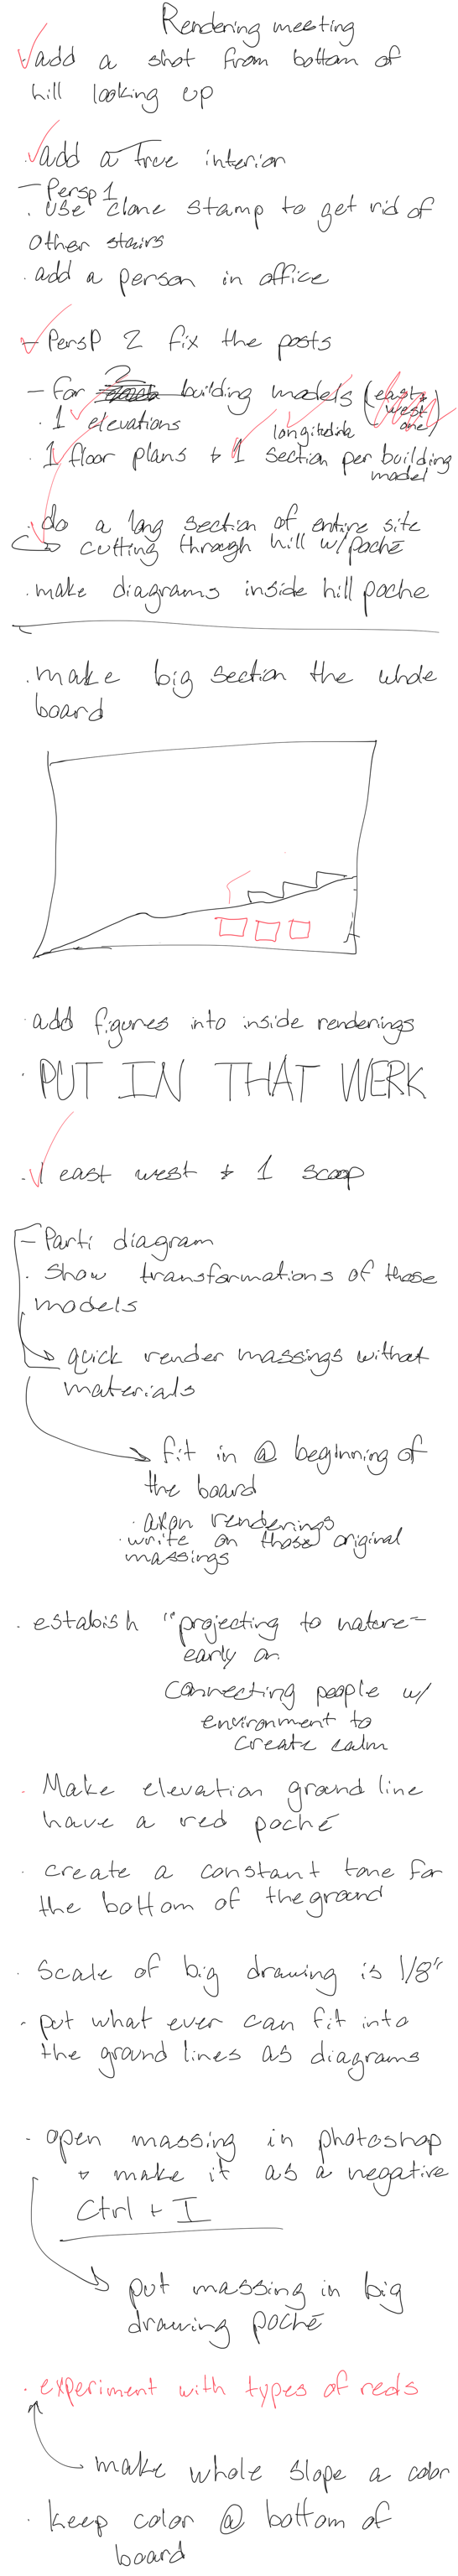 Rendering meeting
. add a shot from bottom of
hill looking up
. add a true interior
- Persp 1
. use clone stamp to get rid of
other stairs
. add a person in office
- Persp 2 fix the posts
- For 3 building models (east &
west
one)
. 1 elevations
longitudinle
. 1 floor plans + 1 section per building
model
. do a long section of entire site
cutting through hill w/ poché
. make diagrams inside hill poche
. make big section the whole
board
. add figures into inside renderings
. PUT IN THAT WERK
. 1 east west + 1 scoop
- Parti diagram
. Show transformations of those
models
quick render massings without
materials
fit in @ beginning of
the board
. axon renderings
. write on those original
massings
. estabish "projecting to nature -
early on
connecting people w/
environment to
create calm
. Make elevation ground line
have a red poché
. create a constant tone for
the bottom of the ground
. Scale of big drawing is 1/8"
. put what ever can fit into
the ground lines as diagrams
. open massing in photoshop
+ make it as a negative
Ctrl + I
put massing in big
drawing poché
. experiment with types of reds
make whole slope a color
. keep color @ bottom of
board